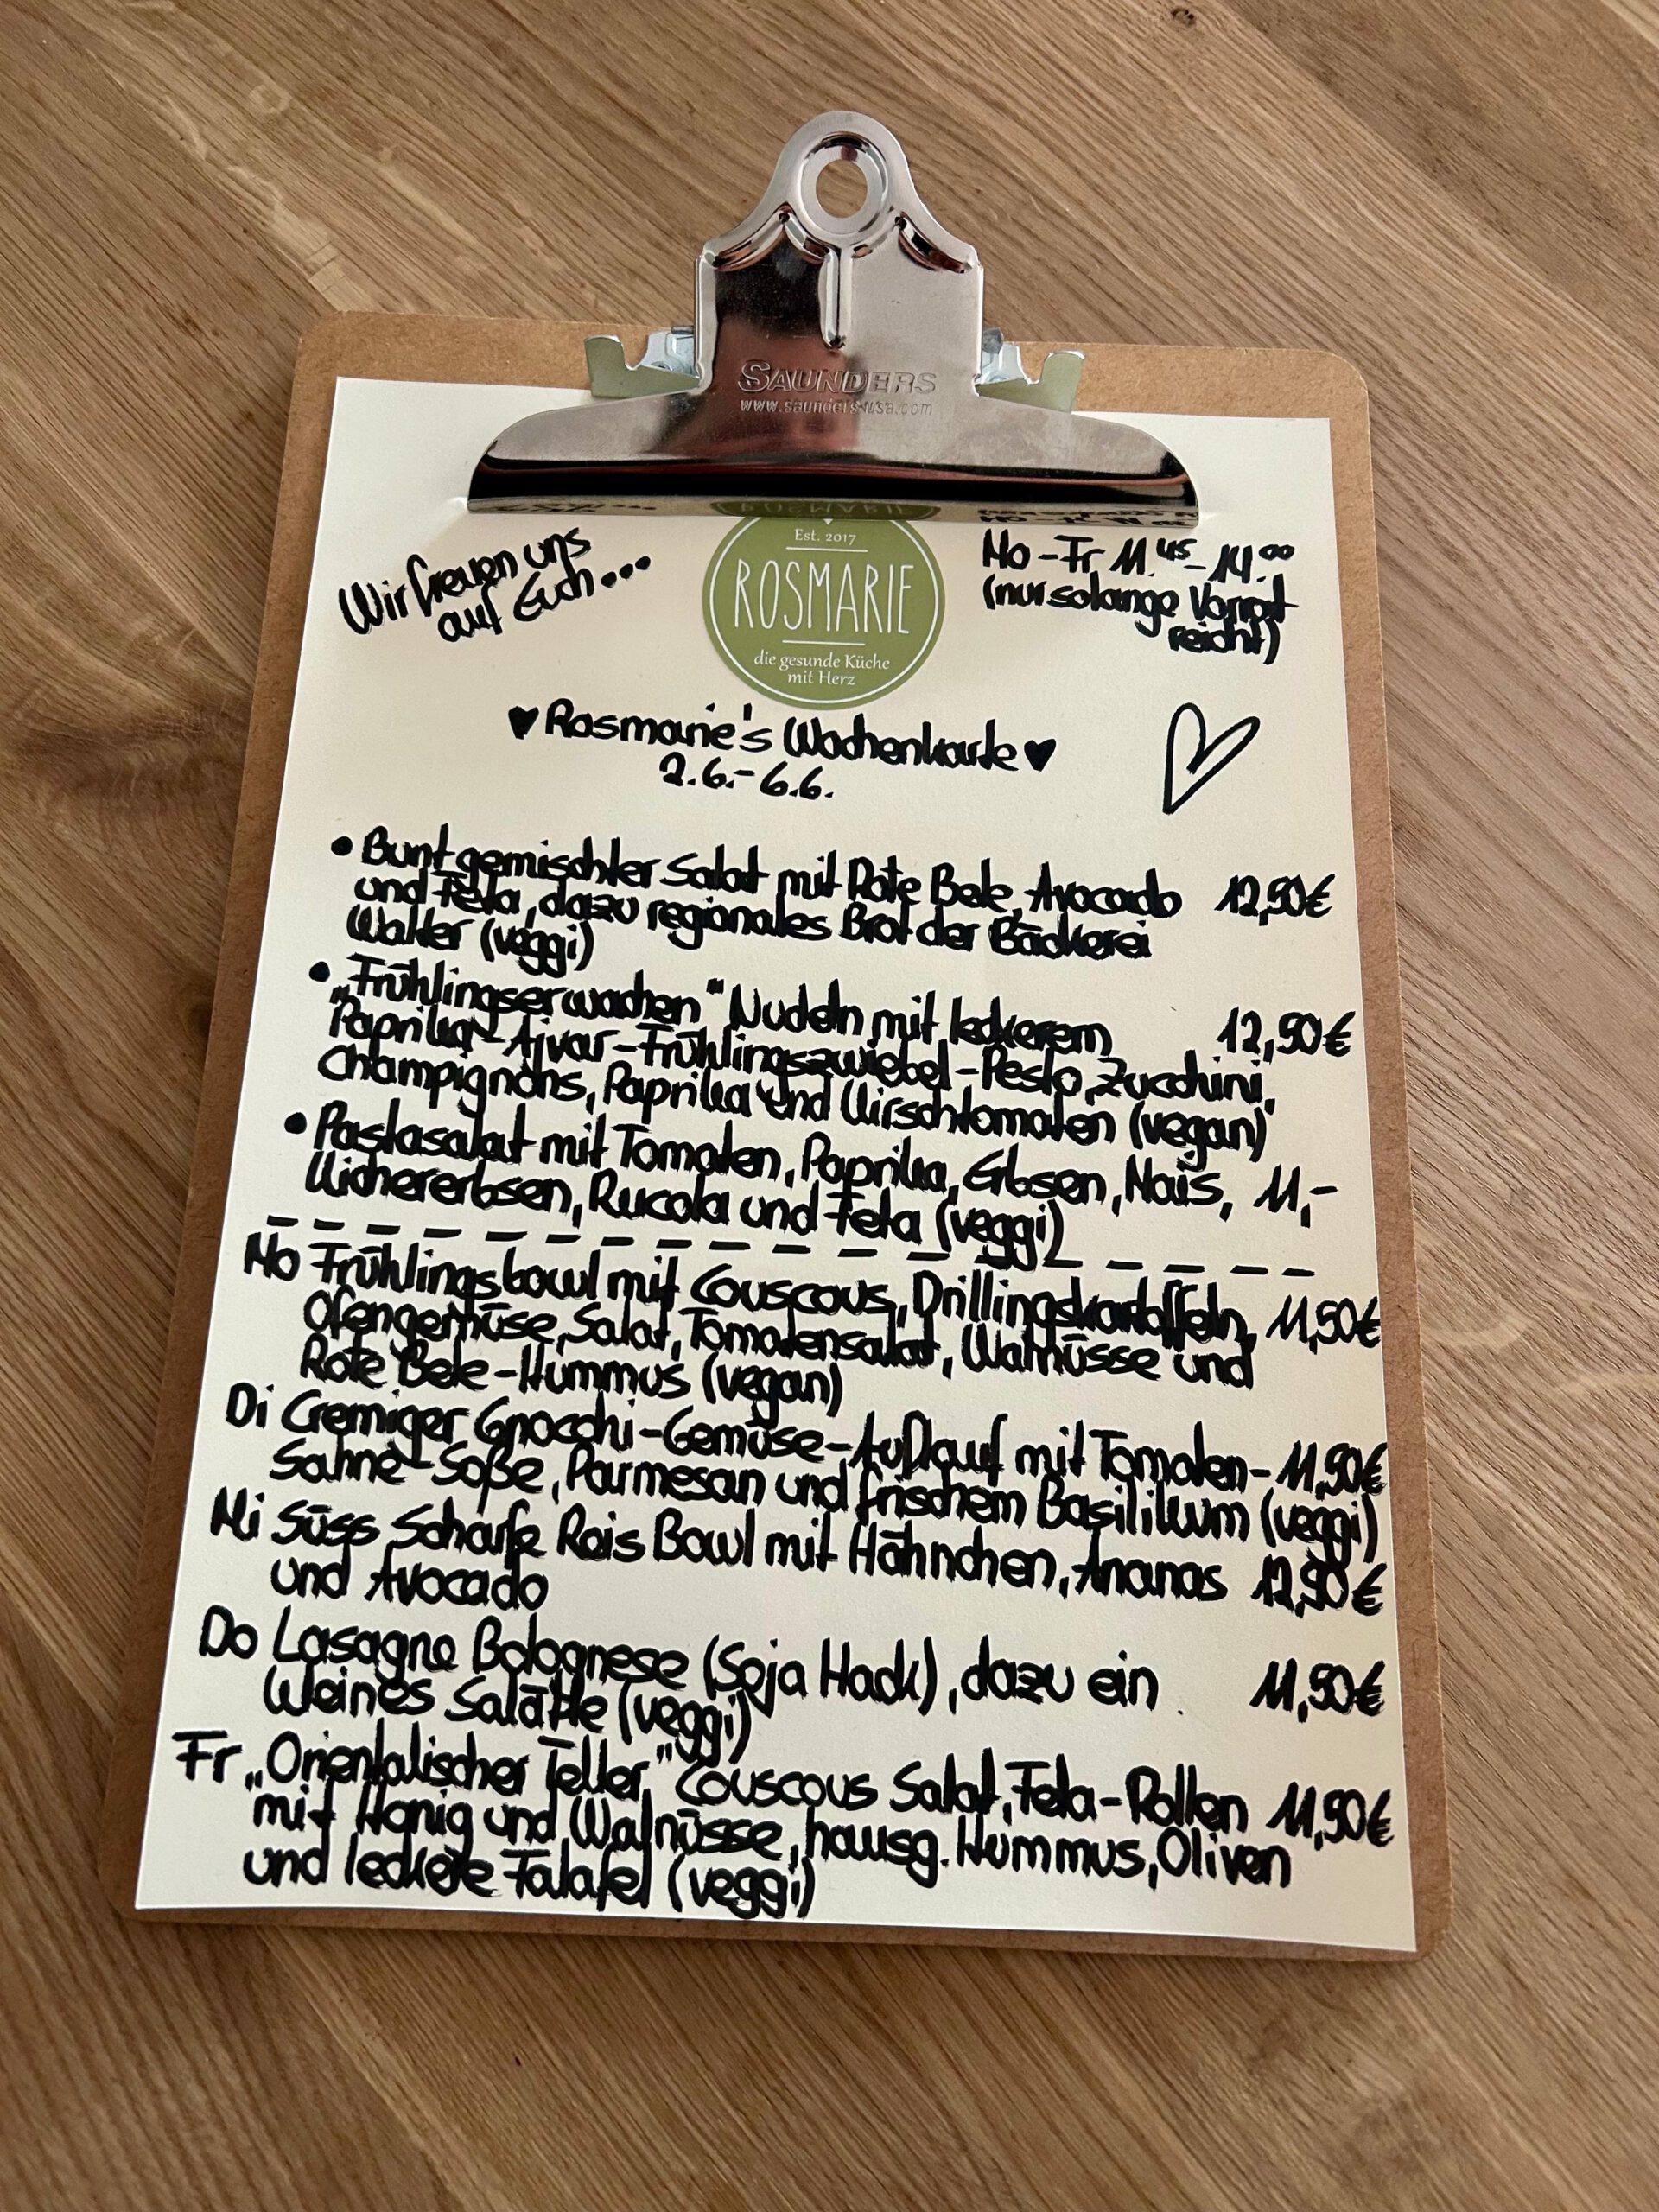 SAUNDERS
www.saunders-usa.com
Wir freuen uns
auf Euch...
Est. 2017
ROSMARIE
die gesunde Küche
mit Herz
Mo - Fr 11.45 - 14.00
(nur solange Vorrat
reicht)
♥ Rosmarie's Wochenkarte ♥
2.6. - 6.6.
• Bunt gemischter Salat mit Rote Bete, Avocado 12,90€
und Feta, dazu regionales Brot der Bäckerei
Walter (veggi)
• „Frühlingserwachen" Nudeln mit leckerem 12,90€
Paprika-Ajvar-Frühlingszwiebel-Pesto, Zucchini,
Champignons, Paprika und Kirschtomaten (vegan)
• Pastasalat mit Tomaten, Paprika, Erbsen, Mais, 11,-
Kichererbsen, Rucola und Feta (veggi)
Mo Frühlingsbowl mit Couscous, Drillingskartoffeln, 11,50€
Ofengemüse, Salat, Tomatensalat, Walnüsse und
Rote Bete-Hummus (vegan)
Di Cremiger Gnocchi-Gemüse-Auflauf mit Tomaten- 11,90€
Sahne-Soße, Parmesan und frischem Basilikum (veggi)
Mi Süss Scharfe Reis Bowl mit Hähnchen, Ananas 12,90€
und Avocado
Do Lasagne Bolognese (Soja Hack), dazu ein 11,50€
kleines Salätle (veggi)
Fr „Orientalischer Teller" Couscous Salat, Feta-Rollen 11,90€
mit Honig und Walnüsse, hausg. Hummus, Oliven
und leckere Falafel (veggi)